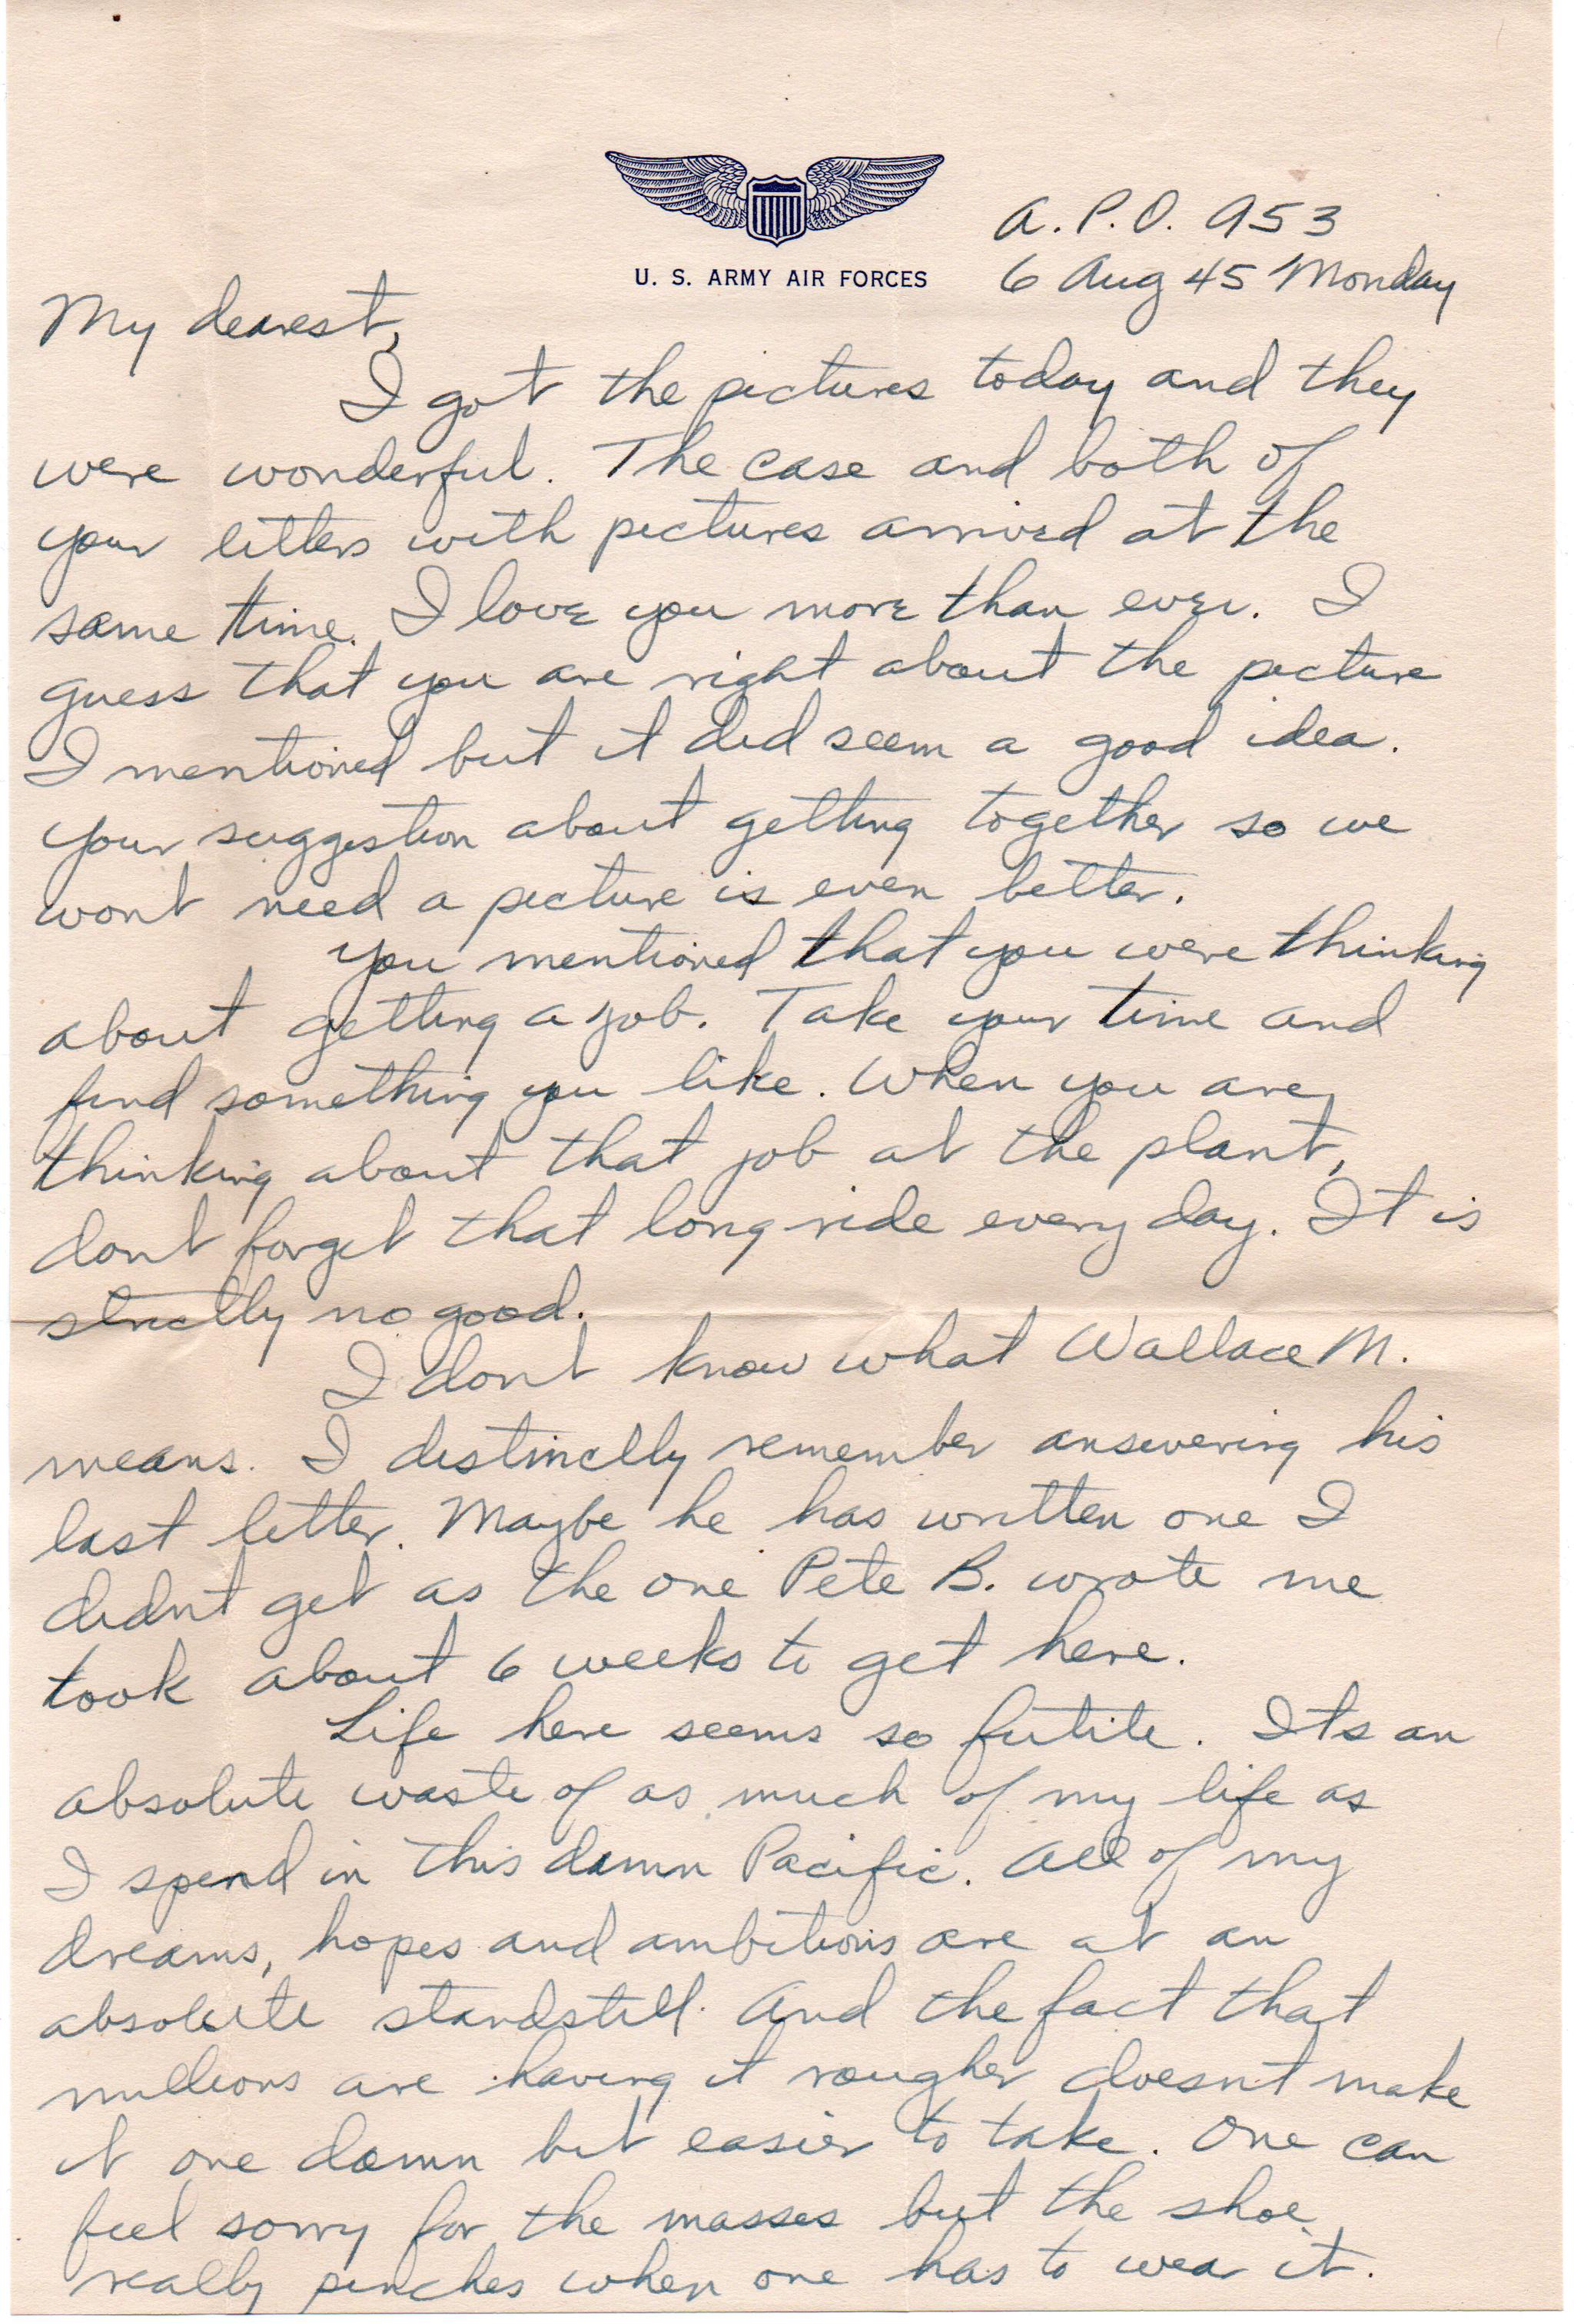 A.P.O. 953
U. S. ARMY AIR FORCES
6 Aug 45 Monday
My dearest,
I got the pictures today and they
were wonderful. The case and both of
your letters with pictures arrived at the
same time. I love you more than ever. I
guess that you are right about the picture
I mentioned but it did seem a good idea.
Your suggestion about getting together so we
wont need a picture is even better.
You mentioned that you were thinking
about getting a job. Take your time and
find something you like. When you are
thinking about that job at the plant,
dont forget that long ride every day. It is
strictly no good.
I dont know what Wallace M.
means. I distinctly remember answering his
last letter. Maybe he has written one I
didnt get as the one Pete B. wrote me
took about 6 weeks to get here.
Life here seems so futile. Its an
absolute waste of as much of my life as
I spend in this damn Pacific. All of my
dreams, hopes and ambitions are at an
absolute standstill. And the fact that
millions are having it rougher doesnt make
it one damn bit easier to take. One can
feel sorry for the masses but the shoe
really pinches when one has to wear it.